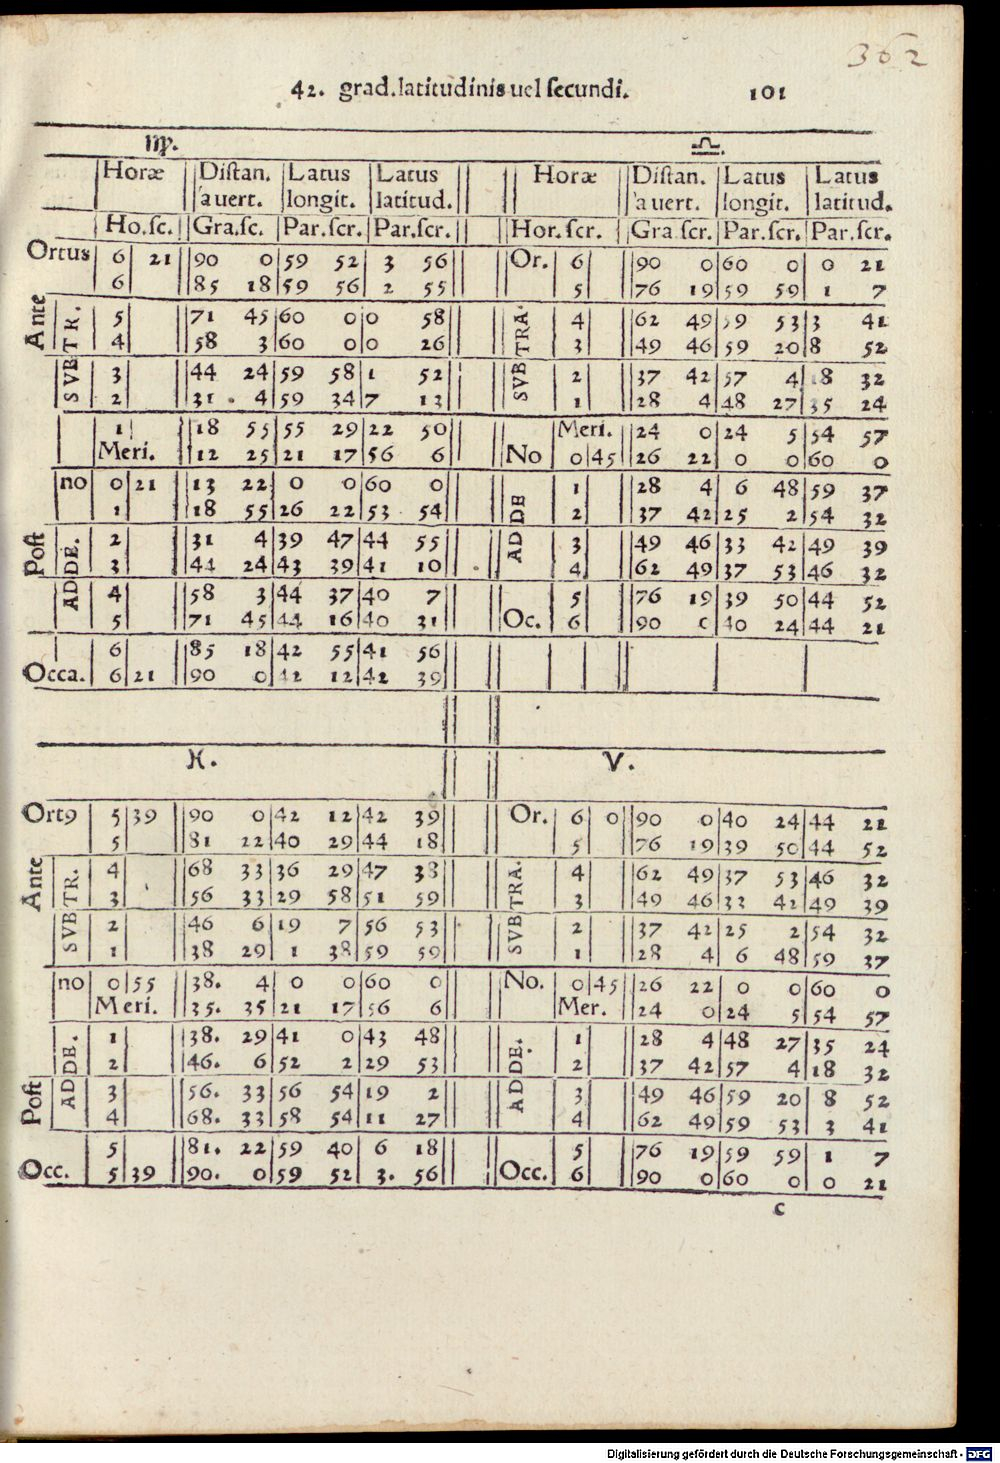 362
42. grad.latitudinis uel ſecundi. 101
♍. ♎.
Horæ Diſtan. Latus Latus Horæ Diſtan. Latus Latus
a uert. longit. latitud. a uert. longit. latitud.
Ho.ſc. Gra.ſc. Par.ſcr. Par.ſcr. Hor.ſcr. Gra ſcr. Par.ſcr. Par.ſcr.
Ortus 6 21 90 0 59 52 3 56 Or. 6 90 0 60 0 0 21
6 85 18 59 56 2 55 5 76 19 59 59 1 7
Ante SVBTR. SVBTRA.
5 71 45 60 0 0 58 4 62 49 59 53 3 41
4 58 3 60 0 0 26 3 49 46 59 20 8 52
3 44 24 59 58 1 52 2 37 42 57 4 18 32
2 31 4 59 34 7 13 1 28 4 48 27 35 24
1 18 55 55 29 22 50 Meri. 24 0 24 5 54 57
Meri. 12 25 21 17 56 6 No 0 45 26 22 0 0 60 0
no 0 21 13 22 0 0 60 0 1 28 4 6 48 59 37
1 18 55 26 22 53 54 2 37 42 25 2 54 32
Poſt ADDE. ADDE
2 31 4 39 47 44 55 3 49 46 33 42 49 39
3 44 24 43 39 41 10 4 62 49 37 53 46 32
4 58 3 44 37 40 7 5 76 19 39 50 44 52
5 71 45 44 16 40 31 Oc. 6 90 0 40 24 44 21
6 85 18 42 55 41 56
Occa. 6 21 90 0 42 12 42 39
♓. ♈.
Ort9 5 39 90 0 42 12 42 39 Or. 6 0 90 0 40 24 44 21
5 81 22 40 29 44 18 5 76 19 39 50 44 52
Ante SVBTR. SVBTRA.
4 68 33 36 29 47 38 4 62 49 37 53 46 32
3 56 33 29 58 51 59 3 49 46 33 42 49 39
2 46 6 19 7 56 53 2 37 42 25 2 54 32
1 38 29 1 38 59 59 1 28 4 6 48 59 37
no 0 55 38. 4 0 0 60 0 No. 0 45 26 22 0 0 60 0
Meri. 35. 35 21 17 56 6 Mer. 24 0 24 5 54 57
1 38. 29 41 0 43 48 1 28 4 48 27 35 24
2 46. 6 52 2 29 53 2 37 42 57 4 18 32
Poſt ADDE. ADDE.
3 56. 33 56 54 19 2 3 49 46 59 20 8 52
4 68. 33 58 54 11 27 4 62 49 59 53 3 41
5 81. 22 59 40 6 18 5 76 19 59 59 1 7
Occ. 5 39 90. 0 59 52 3. 56 Occ. 6 90 0 60 0 0 21
c
Digitalisierung gefördert durch die Deutsche Forschungsgemeinschaft - DFG